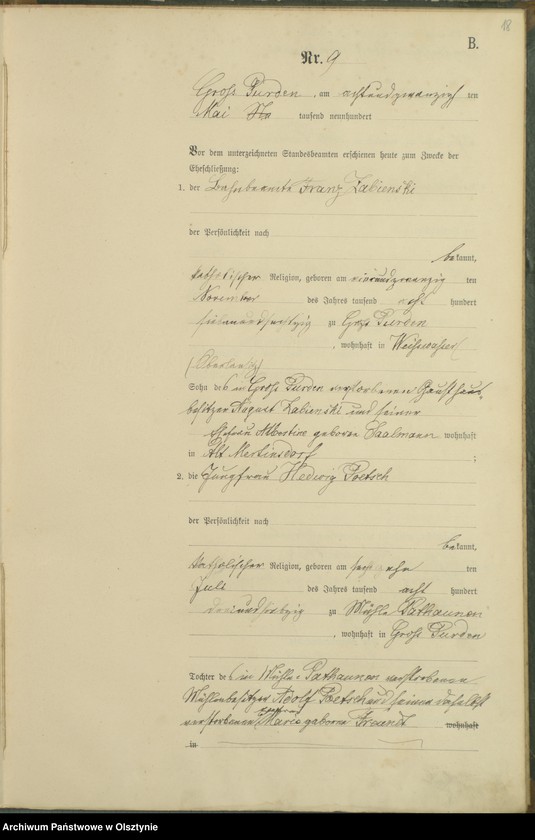 18
B.
Nr. 9
Groß Purden, am achtundzwanzigsten
Mai tausend neunhundert
Vor dem unterzeichneten Standesbeamten erschienen heute zum Zwecke der
Eheschließung:
1. der Bahnbeamte Franz Zabienski
der Persönlichkeit nach
bekannt,
katholischer Religion, geboren am vierundzwanzig ten
November des Jahres tausend acht hundert
zu Groß Purden
, wohnhaft in Weißwasser
(Oberlausitz)
Sohn des in Groß Purden verstorbenen
besitzers August Zabienski und seiner
Ehefrau Albertine geborene Saalmann wohnhaft
in Alt Martinsdorf ;
2. die Jungfrau Hedwig Poetsch
der Persönlichkeit nach
bekannt,
katholischer Religion, geboren am ten
Juli des Jahres tausend acht hundert
zu Mühle Pathaunen
, wohnhaft in Groß Purden
Tochter des in Mühle Pathaunen verstorbenen
Mühlenbesitzer Adolf Poetsch und seiner daselbst
verstorbenen Ehefrau Marie geborene Freundt wohnhaft
in
Archiwum Państwowe w Olsztynie